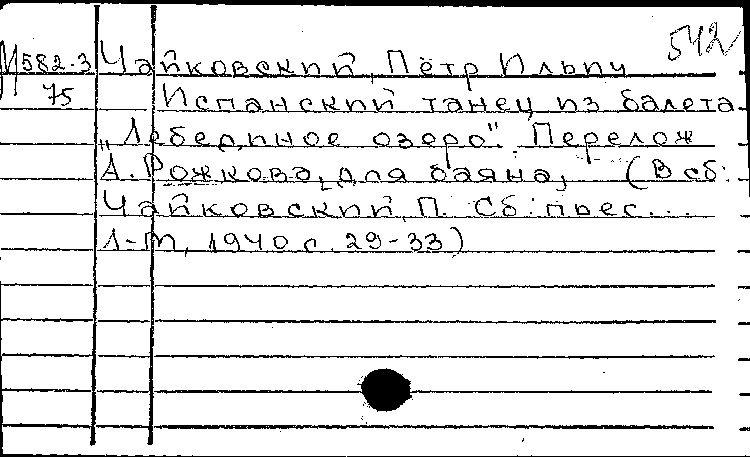 542
М582-3 Чайковский, Пётр Ильич
75 Испанский танец из балета
„Лебединое озеро". Перелож
А. Рожкова, для баяна, (В сб:
Чайковский, П. Сб: пьес...
Л-М, 1940 с. 29-33)